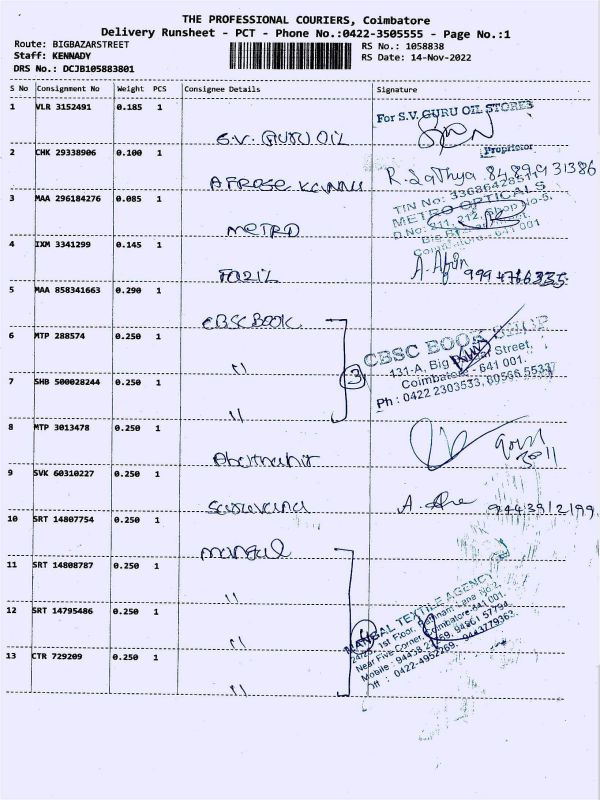 THE PROFESSIONAL COURIERS, Coimbatore
Delivery Runsheet - PCT - Phone No.:0422-3505555 - Page No.:1
Route: BIGBAZARSTREET
Staff: KENNADY
DRS No.: DCJB105883801
RS No.: 1058838
RS Date: 14-Nov-2022
S No Consignment No Weight PCS Consignee Details Signature
1 VLR 3152491 0.185 1
S.V. GURU OIL
For S.V. GURU OIL STORES
Proprietor
2 CHK 29338906 0.100 1
AFROSE
R. Sathya 8489931386
3 MAA 296184276 0.085 1
METRO
METRO OPTICALS
4 IXM 3341299 0.145 1
FAZIL
5 MAA 858341663 0.290 1
CBSC BOOK
6 MTP 288574 0.250 1
"
3
CBSC BOOK SHOP
131-A, Big Street,
Coimbatore - 641 001.
Ph : 0422 2303533,
7 SHB 500028244 0.250 1
"
8 MTP 3013478 0.250 1
9 SVK 60310227 0.250 1
Saravana
A.
10 SRT 14807754 0.250 1
Mangal
11 SRT 14808787 0.250 1
"
12 SRT 14795486 0.250 1
"
4
MANGAL TEXTILE AGENCY
1st Floor,
Near Five Corner, Coimbatore-641 001.
13 CTR 729209 0.250 1
"